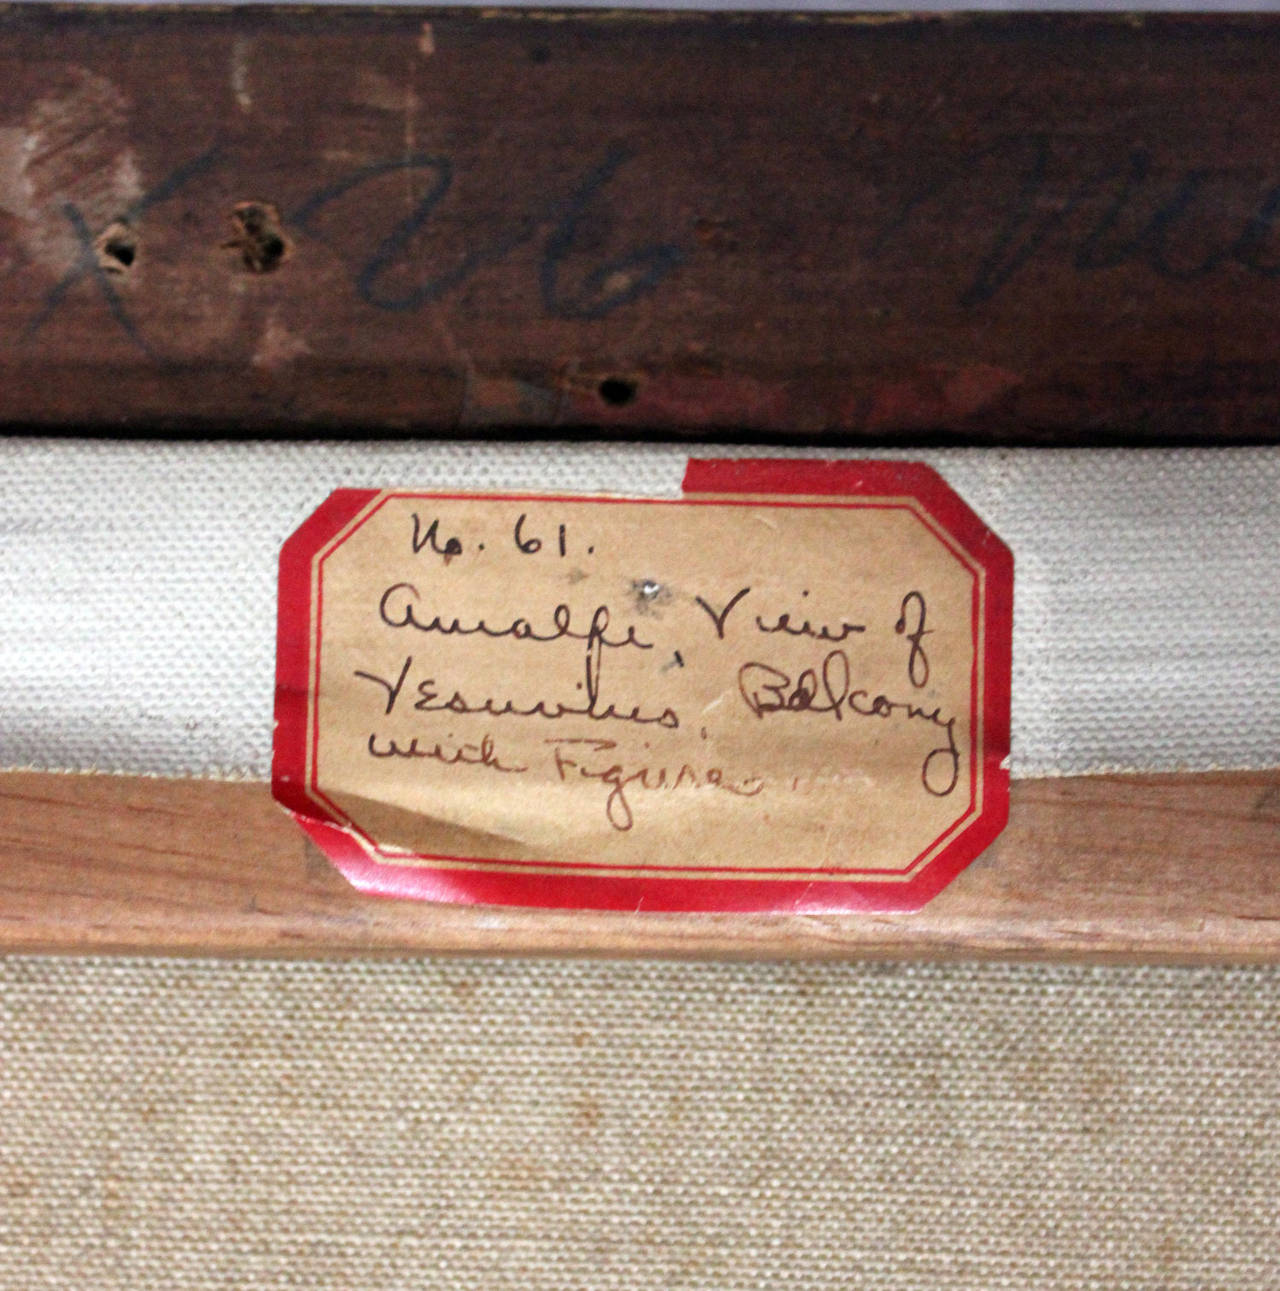 X 26
No. 61.
Amalfi, View of
Vesuvius, Balcony
with Figure